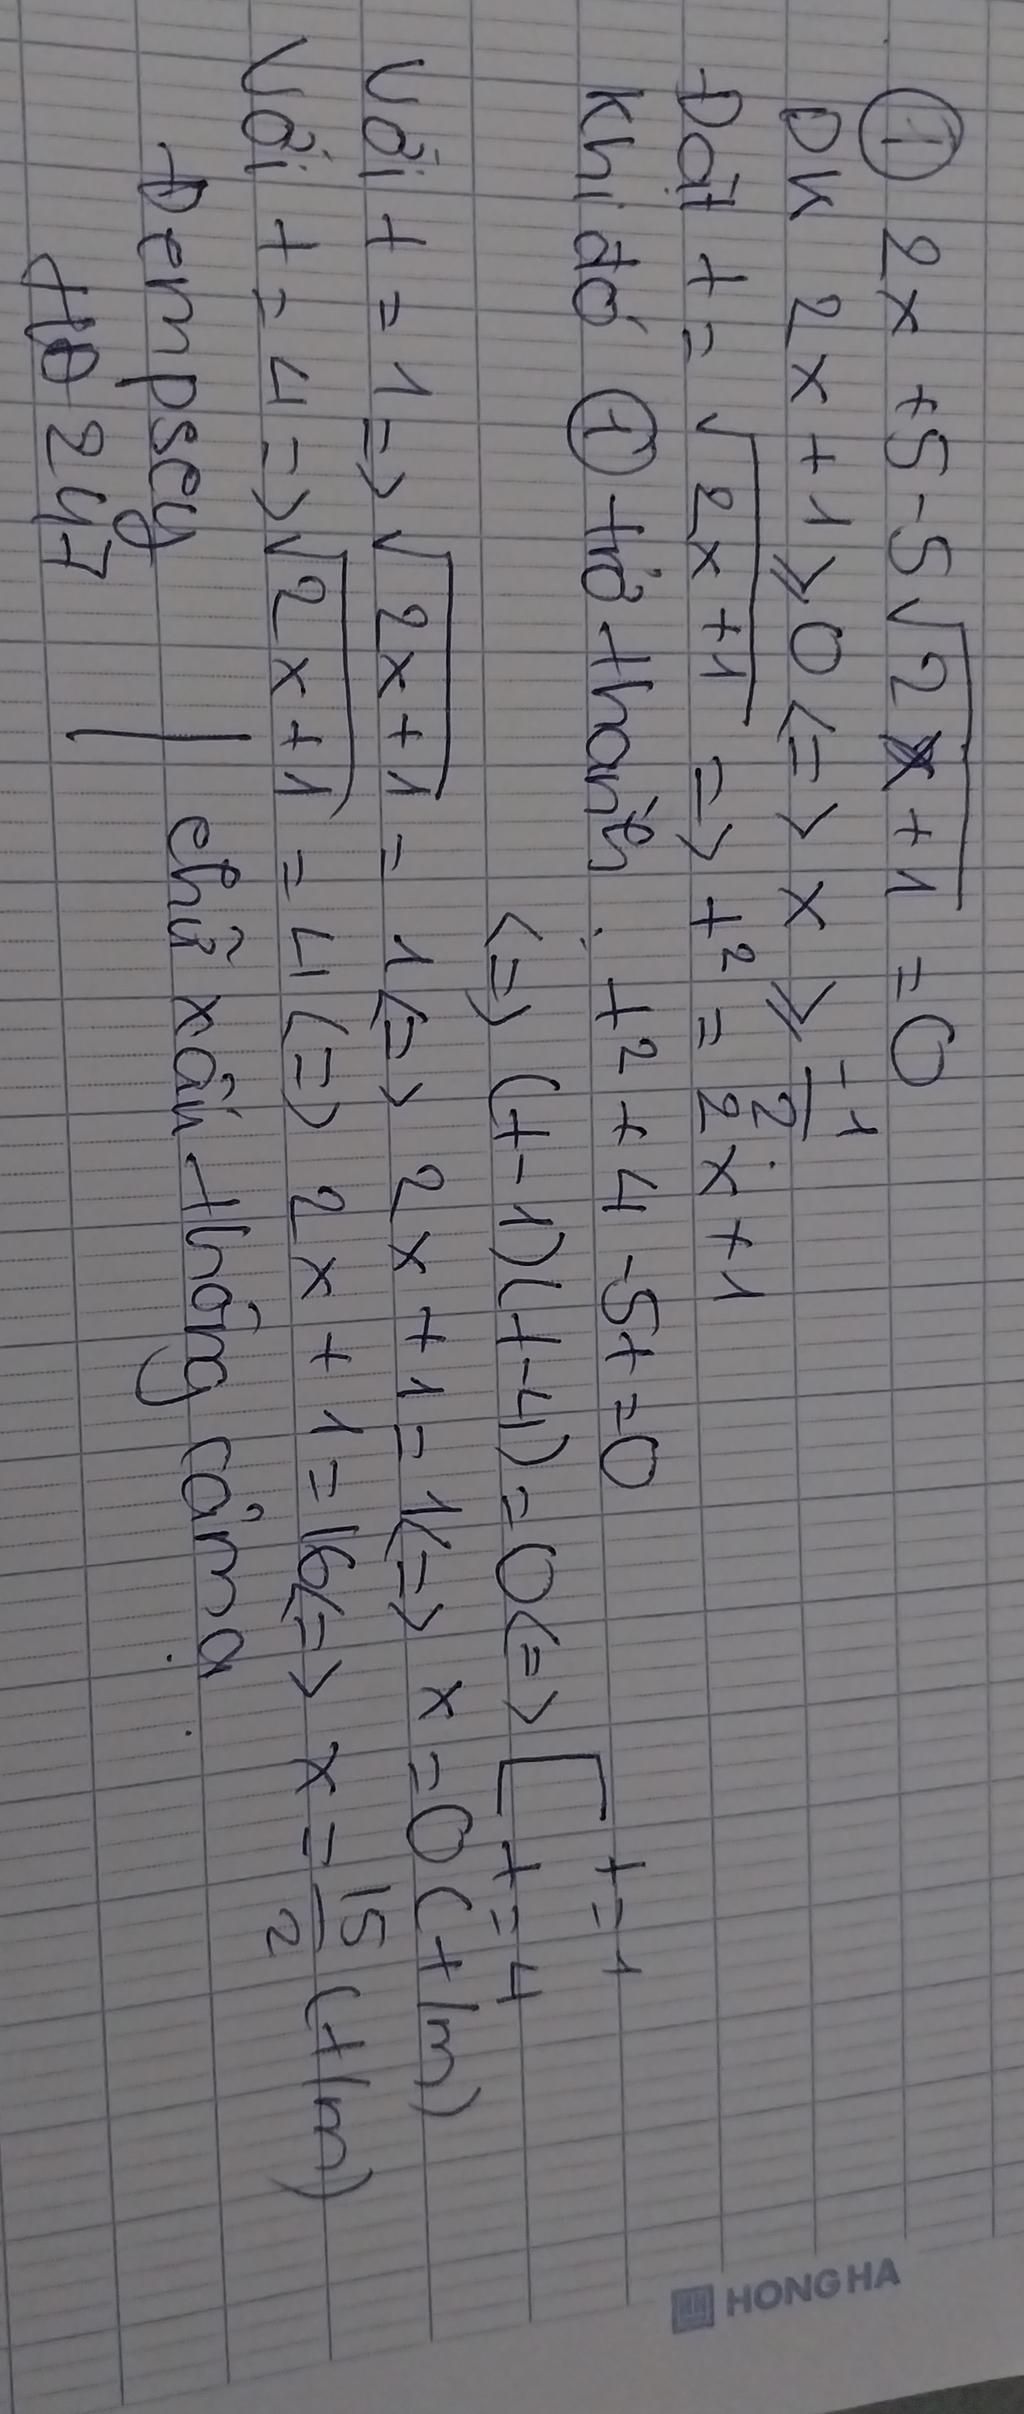 ① 2x + 5 - 5√(2x + 1) = 0
DK 2x + 1 ⩾ 0 <=> x ⩾ -1/2.
Đặt t = √(2x + 1) => t² = 2x + 1
Khi đó ① trở thành: t² + 4 - 5t = 0
<=> (t - 1)(t - 4) = 0 <=> [ t = 1
t = 4
Với t = 1 => √(2x + 1) = 1 <=> 2x + 1 = 1 <=> x = 0 (t/m)
Với t = 4 => √(2x + 1) = 4 <=> 2x + 1 = 16 <=> x = 15/2 (t/m)
Dempsey | chữ xấu thông cảm ạ.
247
HONG HA